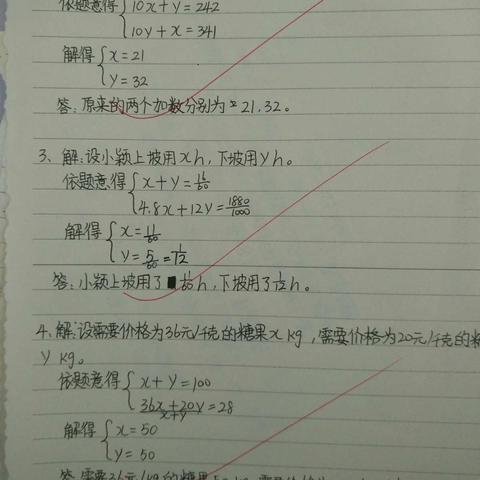 依题意得{10x+y=242
10y+x=341
解得{x=21
y=32
答:原来的两个加数分别为21,32。
3、解:设小颖上坡用xh,下坡用yh。
依题意得{x+y=16/60
4.8x+12y=1880/1000
解得{x=11/60
y=5/60=1/12
答:小颖上坡用了11/60h,下坡用了1/12h。
4、解:设需要价格为36元/千克的糖果x kg,需要价格为20元/千克的糖
y kg。
依题意得{x+y=100
(36x+20y)/(x+y)=28
解得{x=50
y=50
答:需要36元/kg的糖果